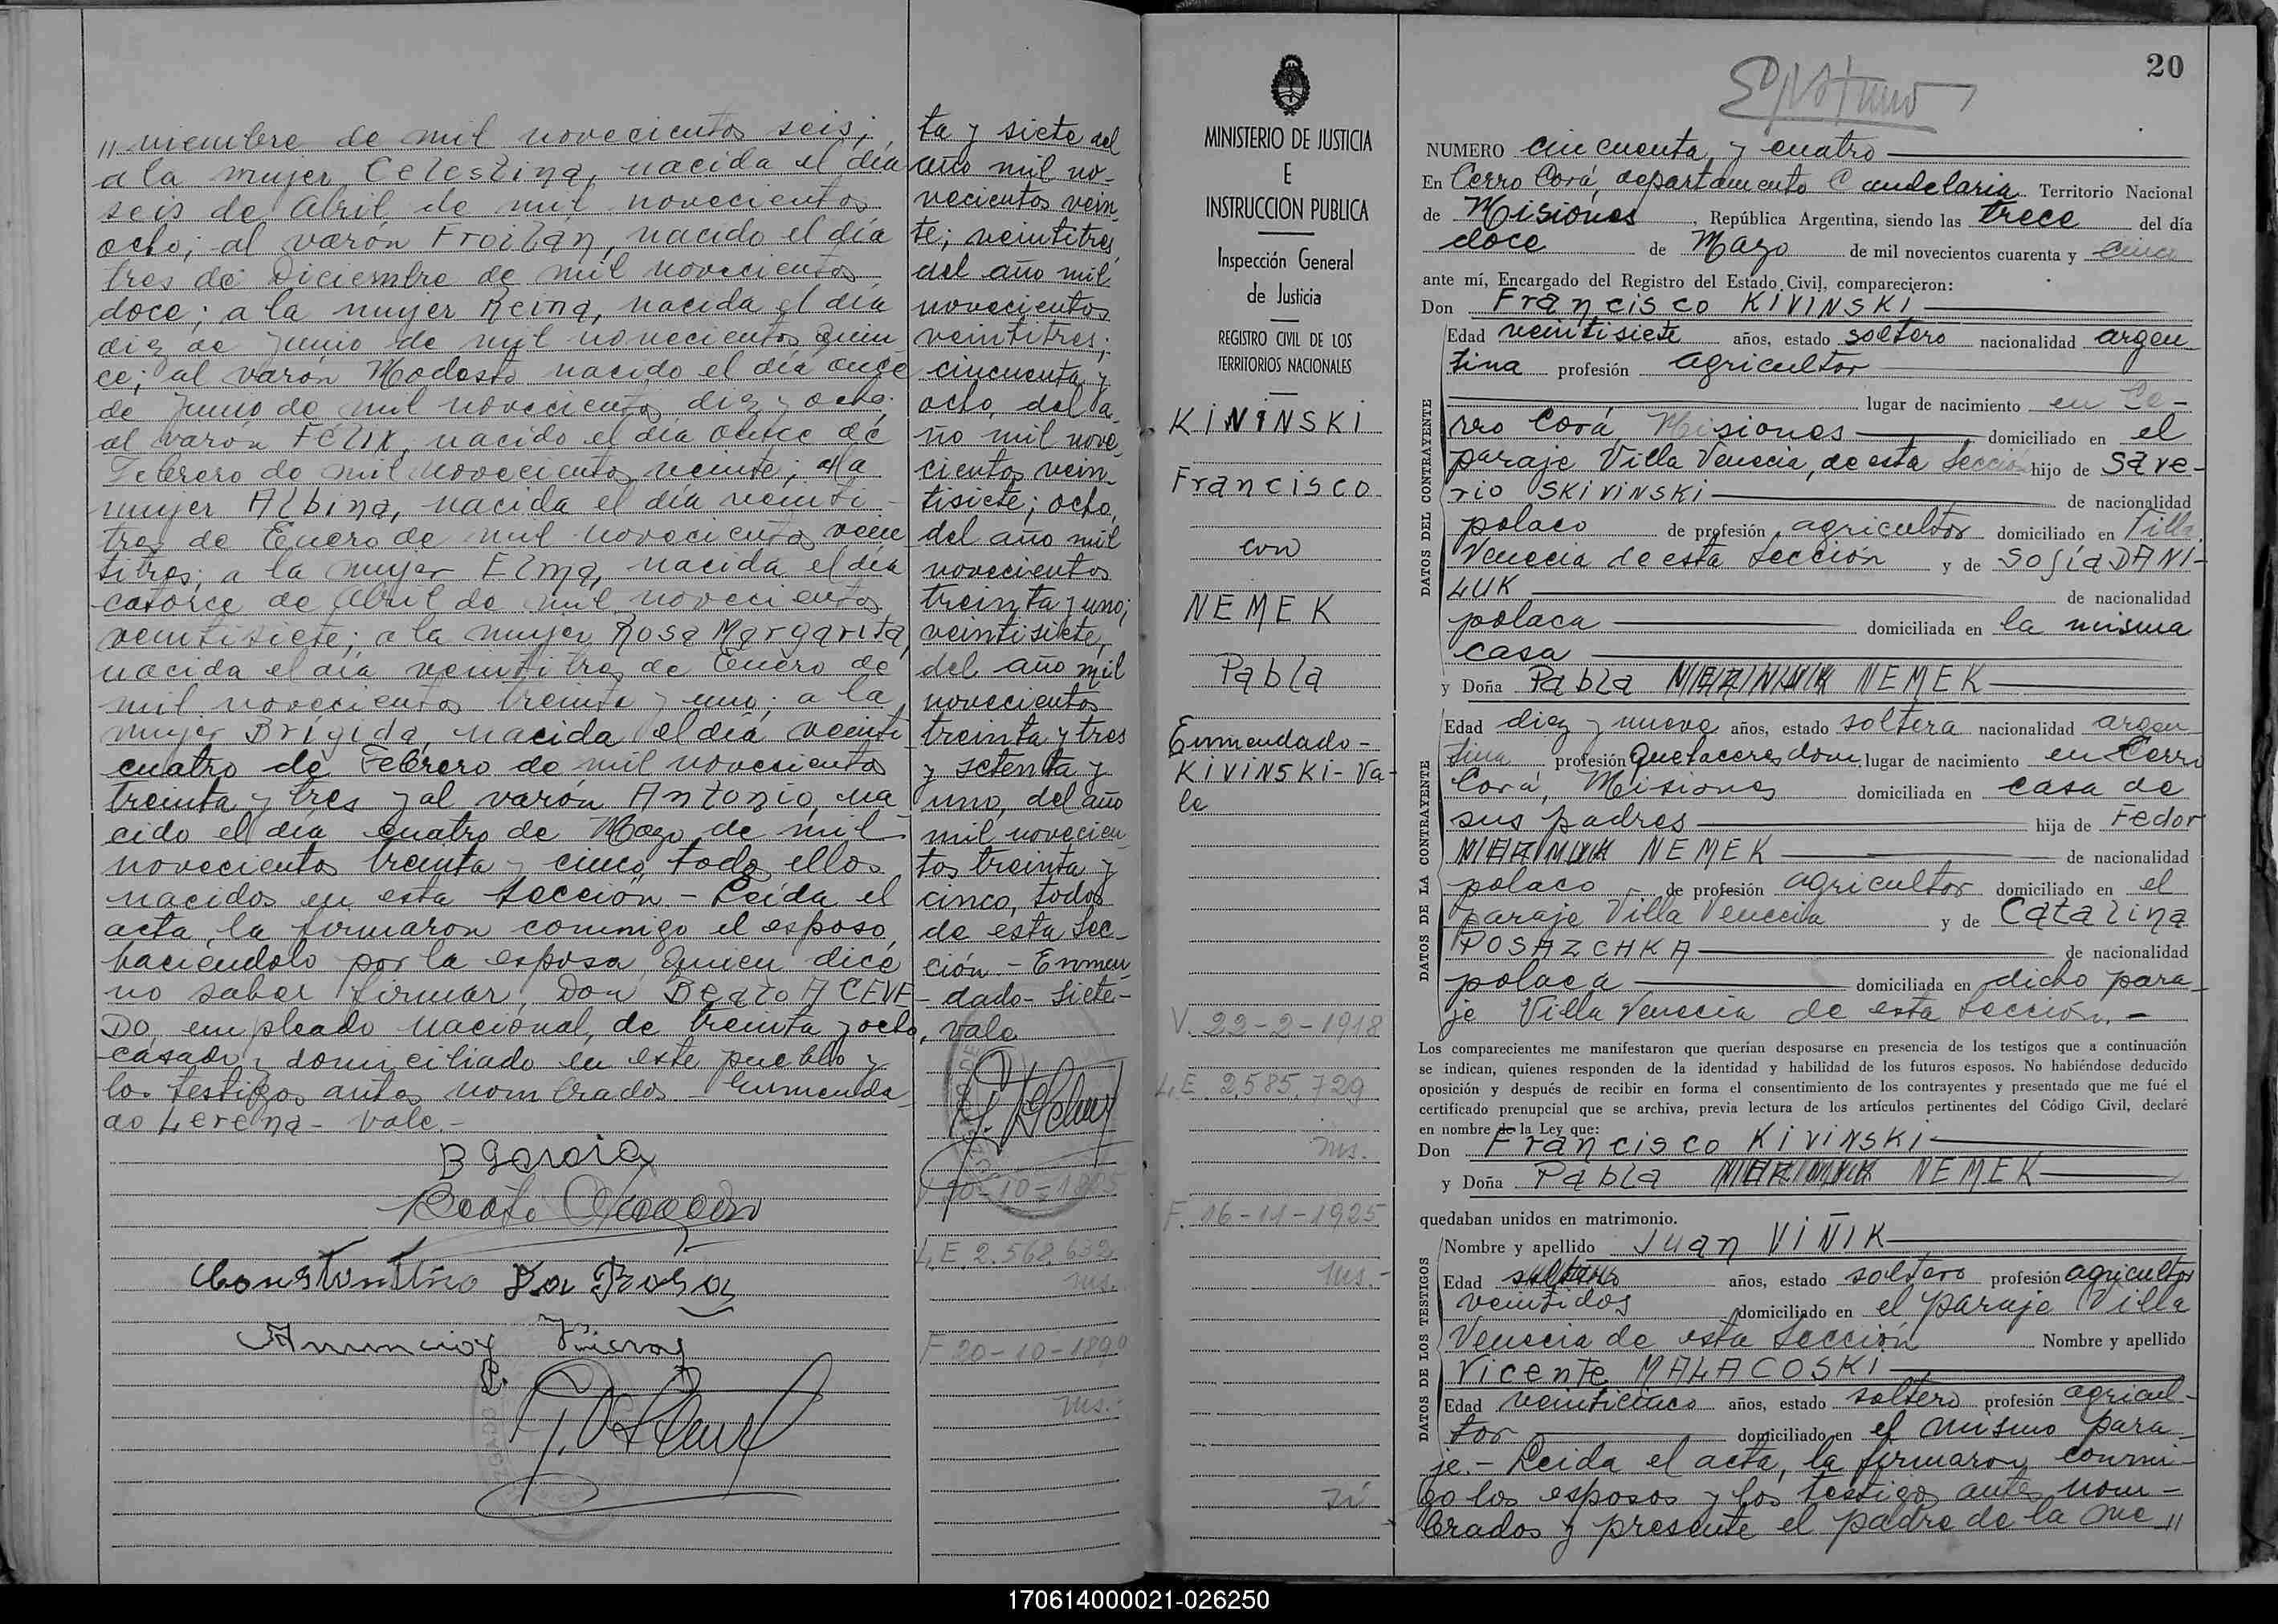 "viembre de mil novecientos seis;
a la mujer Celestina, nacida el día
seis de Abril de mil novecientos
ocho; al varón Froilán, nacido el día
tres de Diciembre de mil novecientos
doce; a la mujer Reina, nacida el día
diez de Junio de mil novecientos quin
ce; al varón Modesto nacido el día once
de Junio de mil novecientos diez y ocho;
al varón Felix, nacido el día once de
Febrero de mil novecientos veinte; a la
mujer Albina, nacida el día veinti-
tres de Enero de mil novecientos vein
titres; a la mujer Elma, nacida el día
catorce de Abril de mil novecientos
veintisiete; a la mujer Rosa Margarita,
nacida el día veintitres de Enero de
mil novecientos treinta y uno; a la
mujer Brígida, nacida el día veinti
cuatro de Febrero de mil novecientos
treinta y tres y al varón Antonio, na
cido el día cuatro de Mayo de mil
novecientos treinta y cinco, todos ellos
nacidos en esta Sección - Leída el
acta, la firmaron conmigo el esposo,
haciendolo por la esposa, quien dice
no saber firmar, Don Beato ACEVE
DO, empleado nacional, de treinta y ocho,
casado y domiciliado en este pueblo y
los testigos antes nombrados - Enmenda
do Lerena - Vale.-
B Garcia
Constantino Da Rosa
ta y siete del
año mil no-
vecientos vein
te; veintitres,
del año mil
novecientos
veintitres;
cincuenta y
ocho, del a-
ño mil nove
cientos vein
tisiete; ocho,
del año mil
novecientos
treinta y uno;
veintisiete,
del año mil
novecientos
treinta y tres
y setenta y
uno, del año
mil novecien
tos treinta y
cinco, todos
de esta Sec-
ción.- Enmen
dado - Siete -
Vale
20-10-1895
L.E. 2.568.632
ms.
F 20-10-1890
ms.-
MINISTERIO DE JUSTICIA
E
INSTRUCCION PUBLICA
Inspección General
de Justicia
REGISTRO CIVIL DE LOS
TERRITORIOS NACIONALES
KIVINSKI
Francisco
con
NEMEK
Pabla
Enmendado -
KIVINSKI - Va-
le
V. 22-2-1918
L.E. 2.585.729
ms.
F. 16-11-1925
ms.-
si
20
NUMERO cincuenta y cuatro
En Cerro Corá, departamento Candelaria Territorio Nacional
de Misiones, República Argentina, siendo las trece del día
doce de Mayo de mil novecientos cuarenta y cinco
ante mí, Encargado del Registro del Estado Civil, comparecieron:
Don Francisco KIVINSKI
DATOS DEL CONTRAYENTE
Edad veintisiete años, estado soltero nacionalidad argen
tina profesión agricultor
lugar de nacimiento en Ce-
rro Corá, Misiones domiciliado en el
paraje Villa Venecia, de esta Sección hijo de Save-
rio SKIVINSKI de nacionalidad
polaco de profesión agricultor domiciliado en Villa
Venecia de esta Sección y de Sofía DANI-
LUK de nacionalidad
polaca domiciliada en la misma
casa
y Doña Pabla NEMEK
DATOS DE LA CONTRAYENTE
Edad diez y nueve años, estado soltera nacionalidad argen
tina profesión quehaceres dom. lugar de nacimiento en Cerro
Corá, Misiones domiciliada en casa de
sus padres hija de Fedor
NEMEK de nacionalidad
polaco de profesión agricultor domiciliado en el
paraje Villa Venecia y de Catalina
POSAZCHKA de nacionalidad
polaca domiciliada en dicho para-
je Villa Venecia de esta Sección.-
Los comparecientes me manifestaron que querían desposarse en presencia de los testigos que a continuación
se indican, quienes responden de la identidad y habilidad de los futuros esposos. No habiéndose deducido
oposición y después de recibir en forma el consentimiento de los contrayentes y presentado que me fué el
certificado prenupcial que se archiva, previa lectura de los artículos pertinentes del Código Civil, declaré
en nombre de la Ley que:
Don Francisco KIVINSKI
y Doña Pabla NEMEK
quedaban unidos en matrimonio.
DATOS DE LOS TESTIGOS
Nombre y apellido Juan VIÑIK
Edad soltero años, estado soltero profesión agricultor
veintidos domiciliado en el paraje Villa
Venecia de esta Sección Nombre y apellido
Vicente MALACOSKI
Edad veinticinco años, estado soltero profesión agricul-
tor domiciliado en el mismo para-
je.- Leida el acta, la firmaron conmi-
go los esposos y los testigos antes nom-
brados y presente el padre de la me "
170614000021-026250